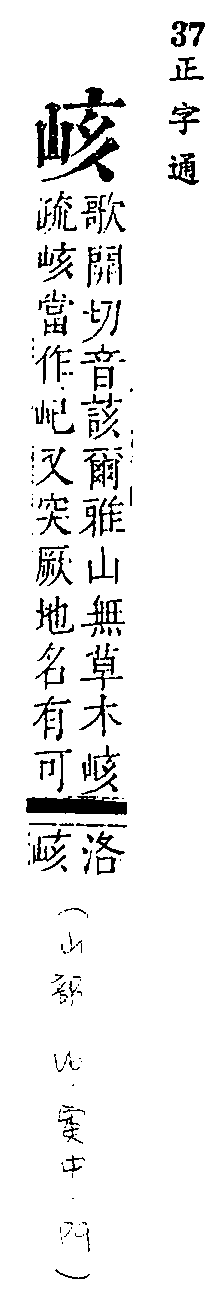 37
正字通
峐
歌開切音該爾雅山無草木峐
疏峐當作屺又突厥地名有可
洛
峐
(山部 寅中.四)